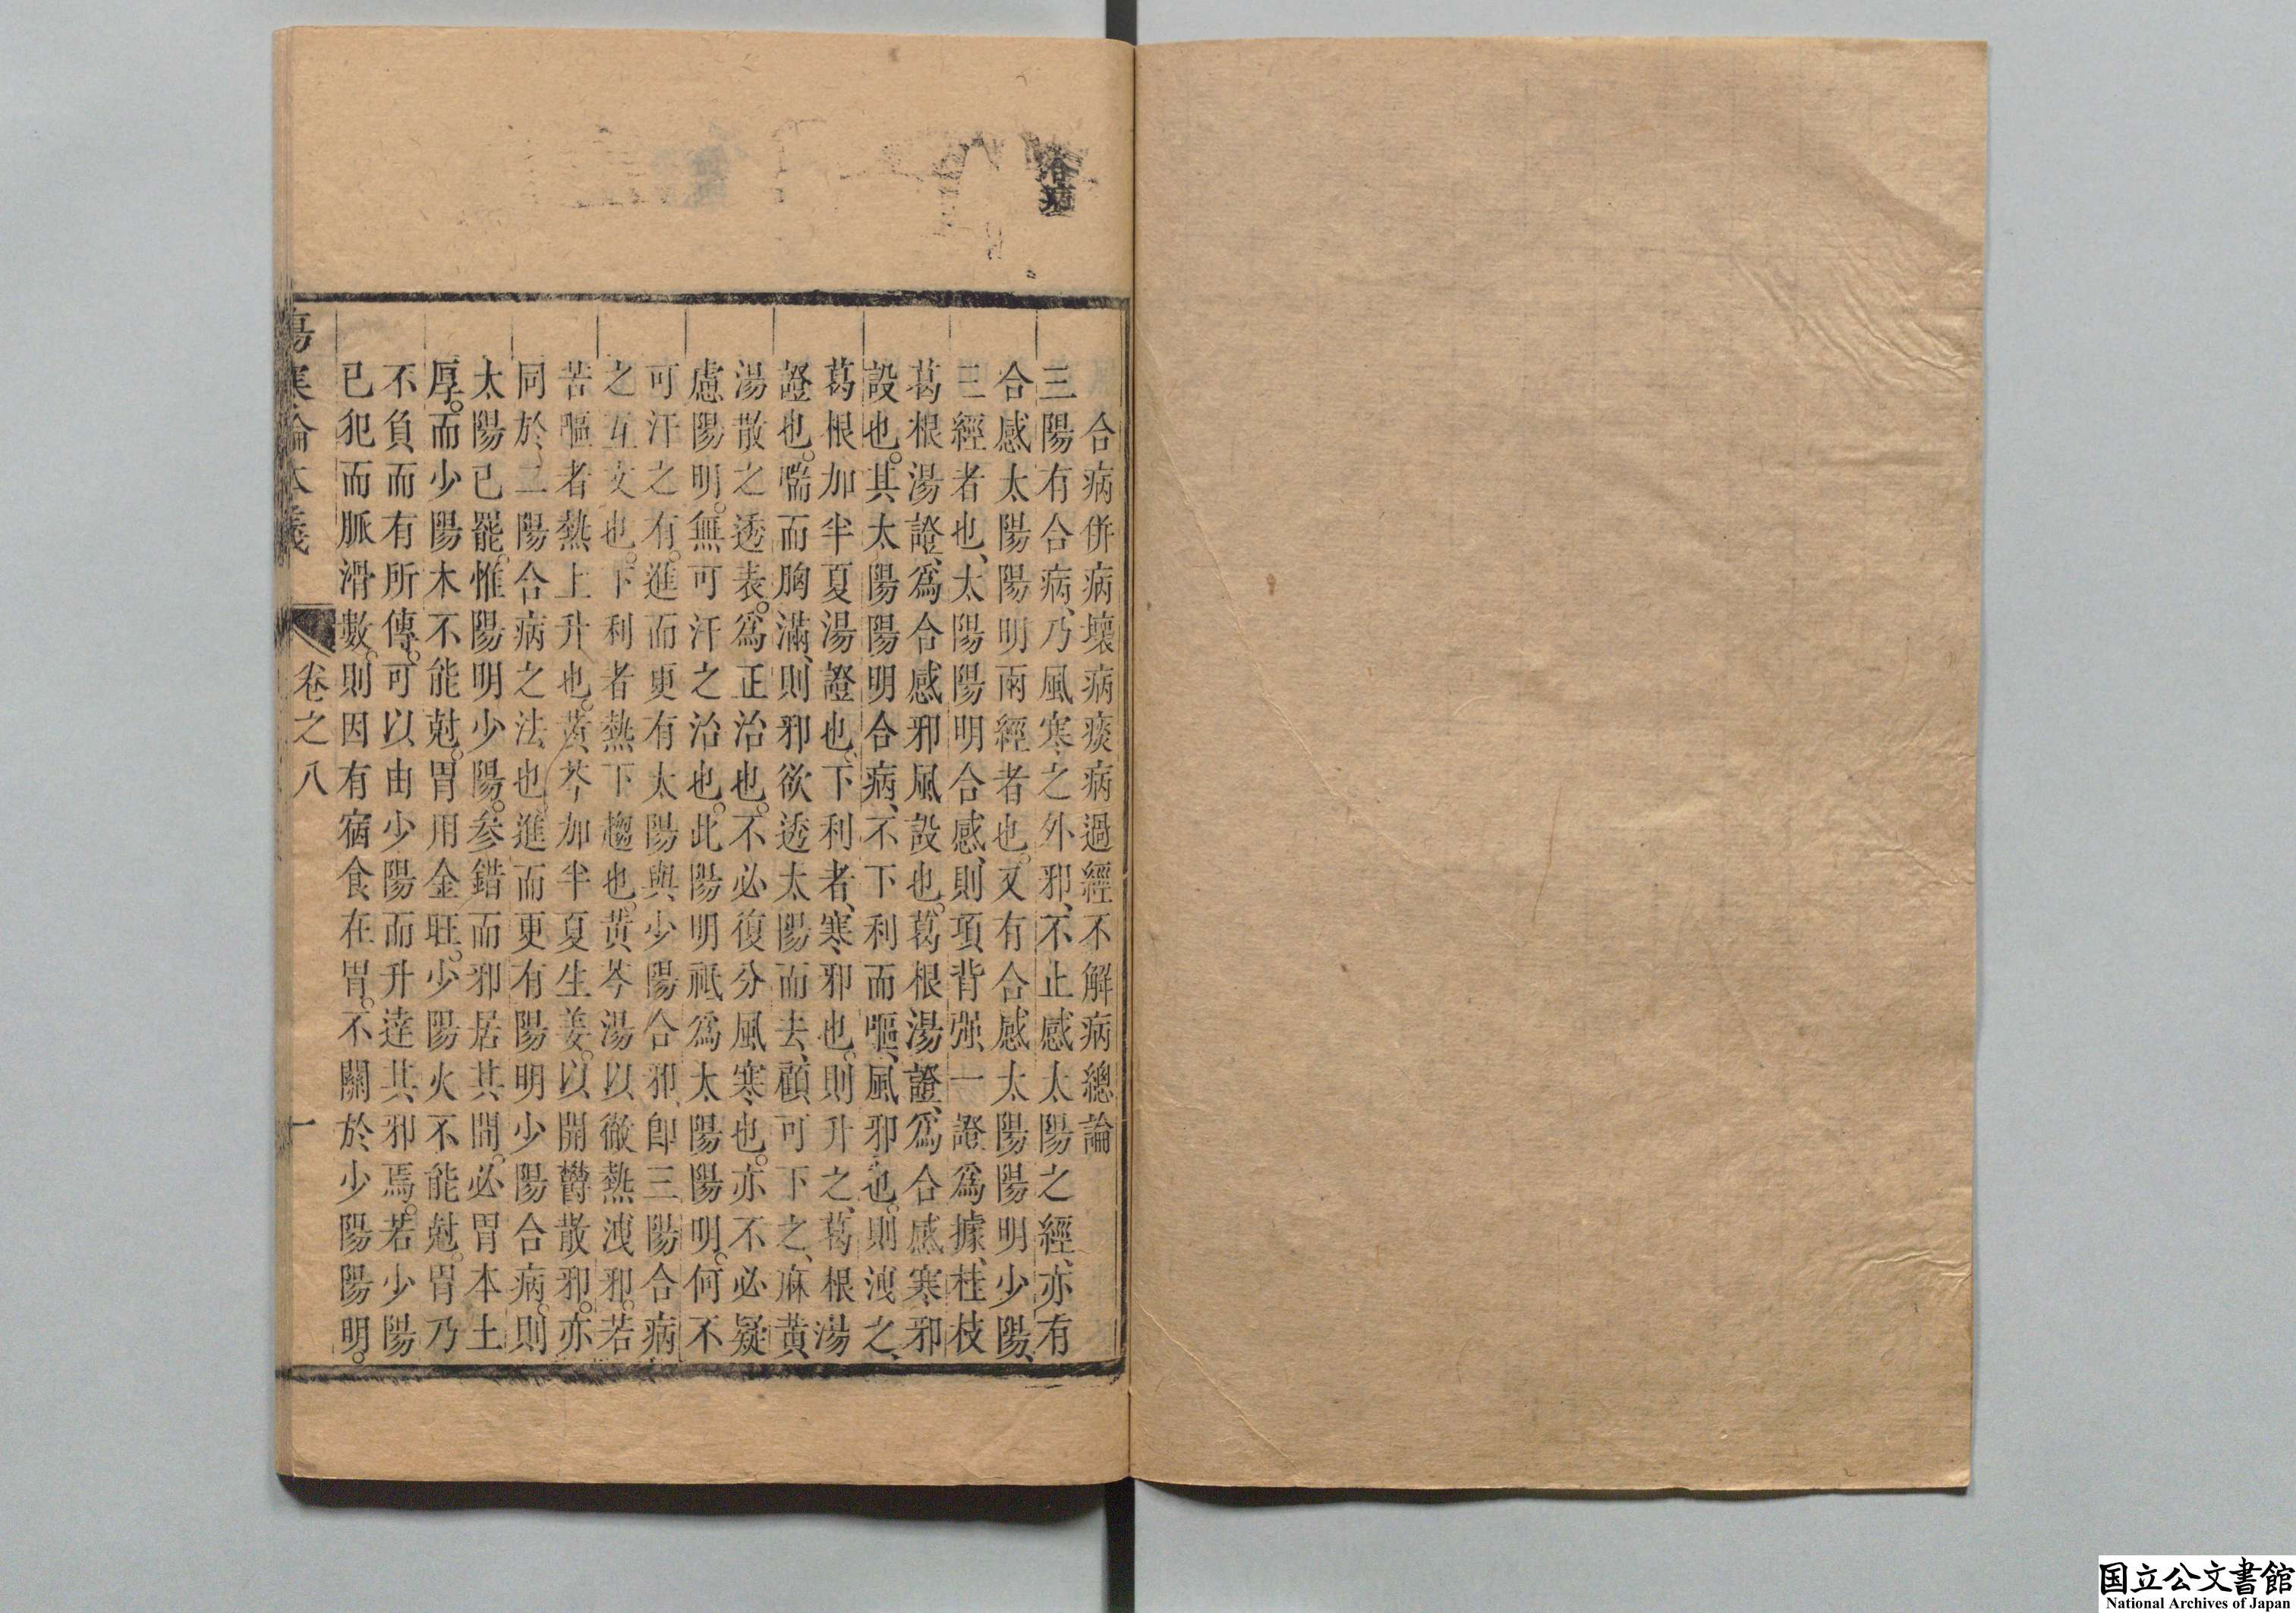 合病併病壞病痰病過經不解病總論
三陽有合病、乃風寒之外邪、不止感太陽之經、亦有
合感太陽陽明兩經者也。又有合感太陽陽明少陽、
三經者也、太陽陽明合感、則項背强、一證爲據、桂枝
葛根湯證、爲合感邪風設也。葛根湯證、爲合感寒邪
設也。其太陽陽明合病、不下利而嘔、風邪也。則洩之、
葛根加半夏湯證也、下利者、寒邪也。則升之、葛根湯
證也。喘而胸滿、則邪欲透太陽而去、顧可下之、麻黃
湯散之透表。爲正治也。不必復分風寒也。亦不必疑
慮陽明。無可汗之治也。此陽明祇爲太陽陽明。何不
可汗之有。進而更有太陽與少陽合邪、即三陽合病
之互文也。下利者熱下趨也。黃芩湯以徹熱洩邪。若
苦嘔者熱上升也。黃芩加半夏生姜。以開欝散邪。亦
同於二陽合病之法也。進而更有陽明少陽合病。則
太陽已罷。惟陽明少陽。参錯而邪居其間。必胃本土
厚。而少陽木不能尅。胃用金旺。少陽火不能尅。胃乃
不負而有所傳。可以由少陽而升達其邪焉。若少陽
已犯而脈滑數。則因有宿食在胃。不關於少陽陽明。
傷寒論本義
卷之八
一
国立公文書館
National Archives of Japan